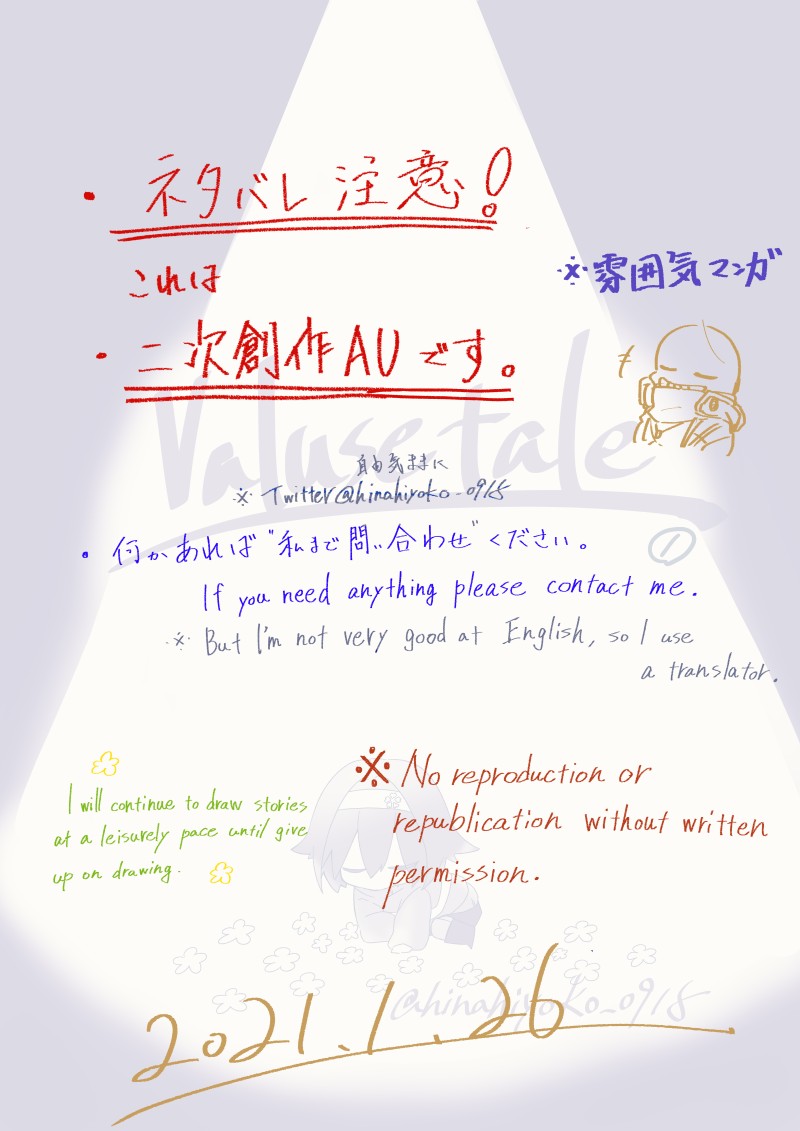 ・ネタバレ注意!
これは
※雰囲気マンガ
・二次創作AUです。
Valusetale
自由気ままに
※Twitter@hinahiyoko_0915
①
・何かあれば"私まで問い合わせ"ください。
If you need anything please contact me.
※But I'm not very good at English, so I use
a translator.
I will continue to draw stories
at a leisurely pace until give
up on drawing.
※No reproduction or
republication without written
permission.
@hinahiyoko_0915
2021.1.26